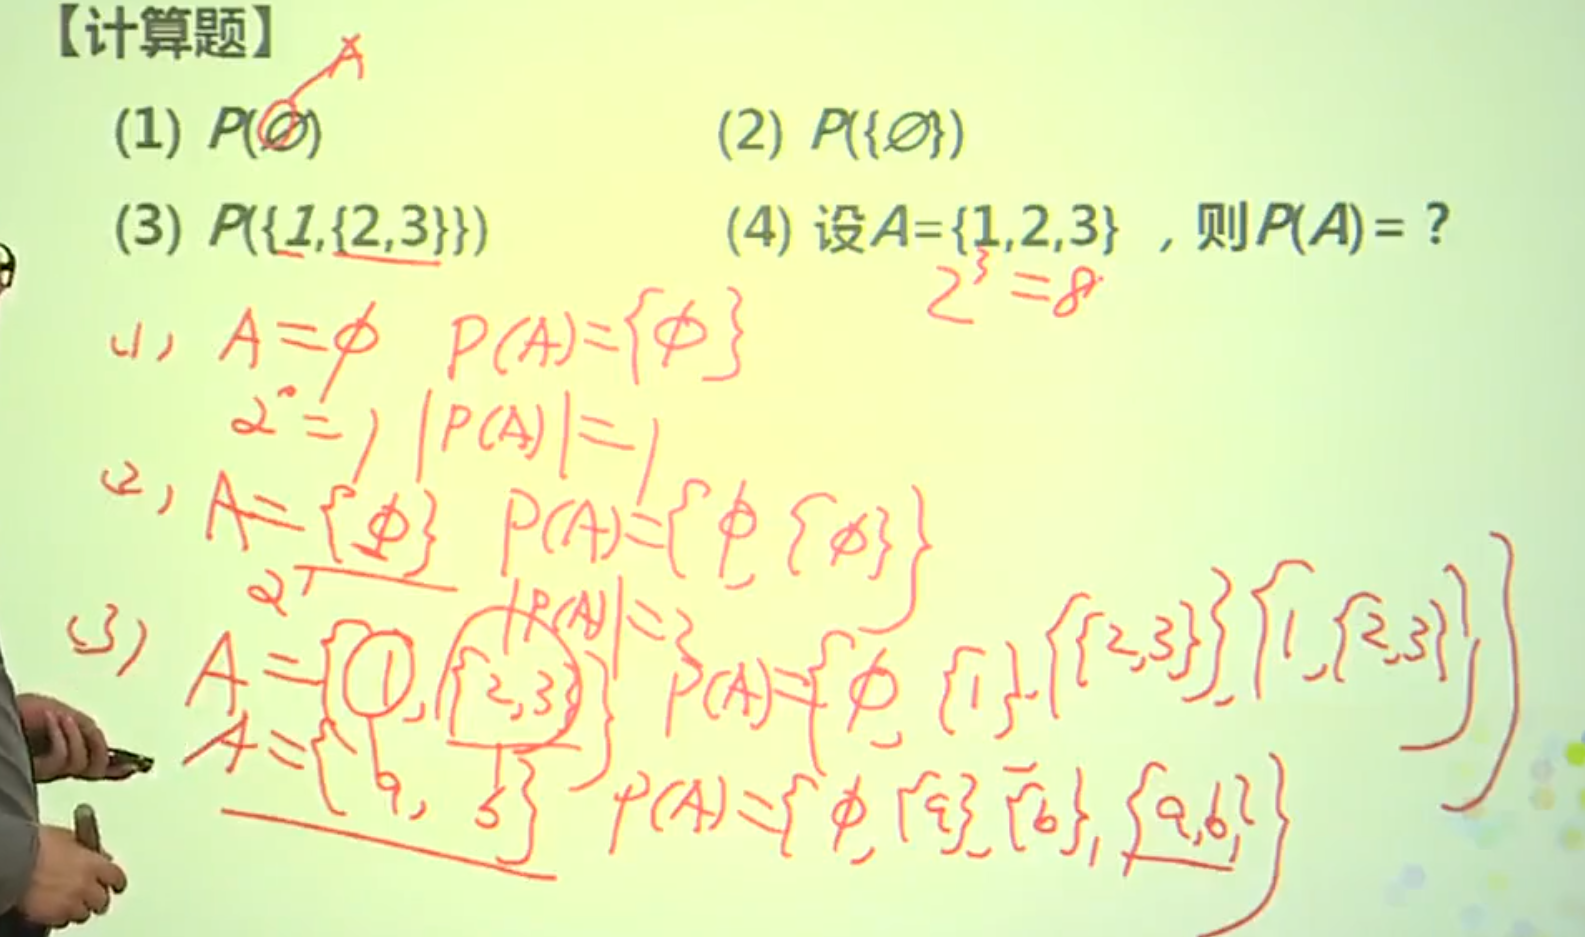 【计算题】
A
(1) P(∅) (2) P({∅})
(3) P({1,{2,3}}) (4) 设A={1,2,3} ，则P(A)=？
2³=8
(1) A=ϕ P(A)={ϕ}
2⁰=1 |P(A)|=1
(2) A={ϕ} P(A)={ϕ,{ϕ}}
2¹ |P(A)|=2
(3) A={1,{2,3}} P(A)={ϕ,{1},{{2,3}},{1,{2,3}}}
A={a,b} P(A)={ϕ,{a},{b},{a,b}}